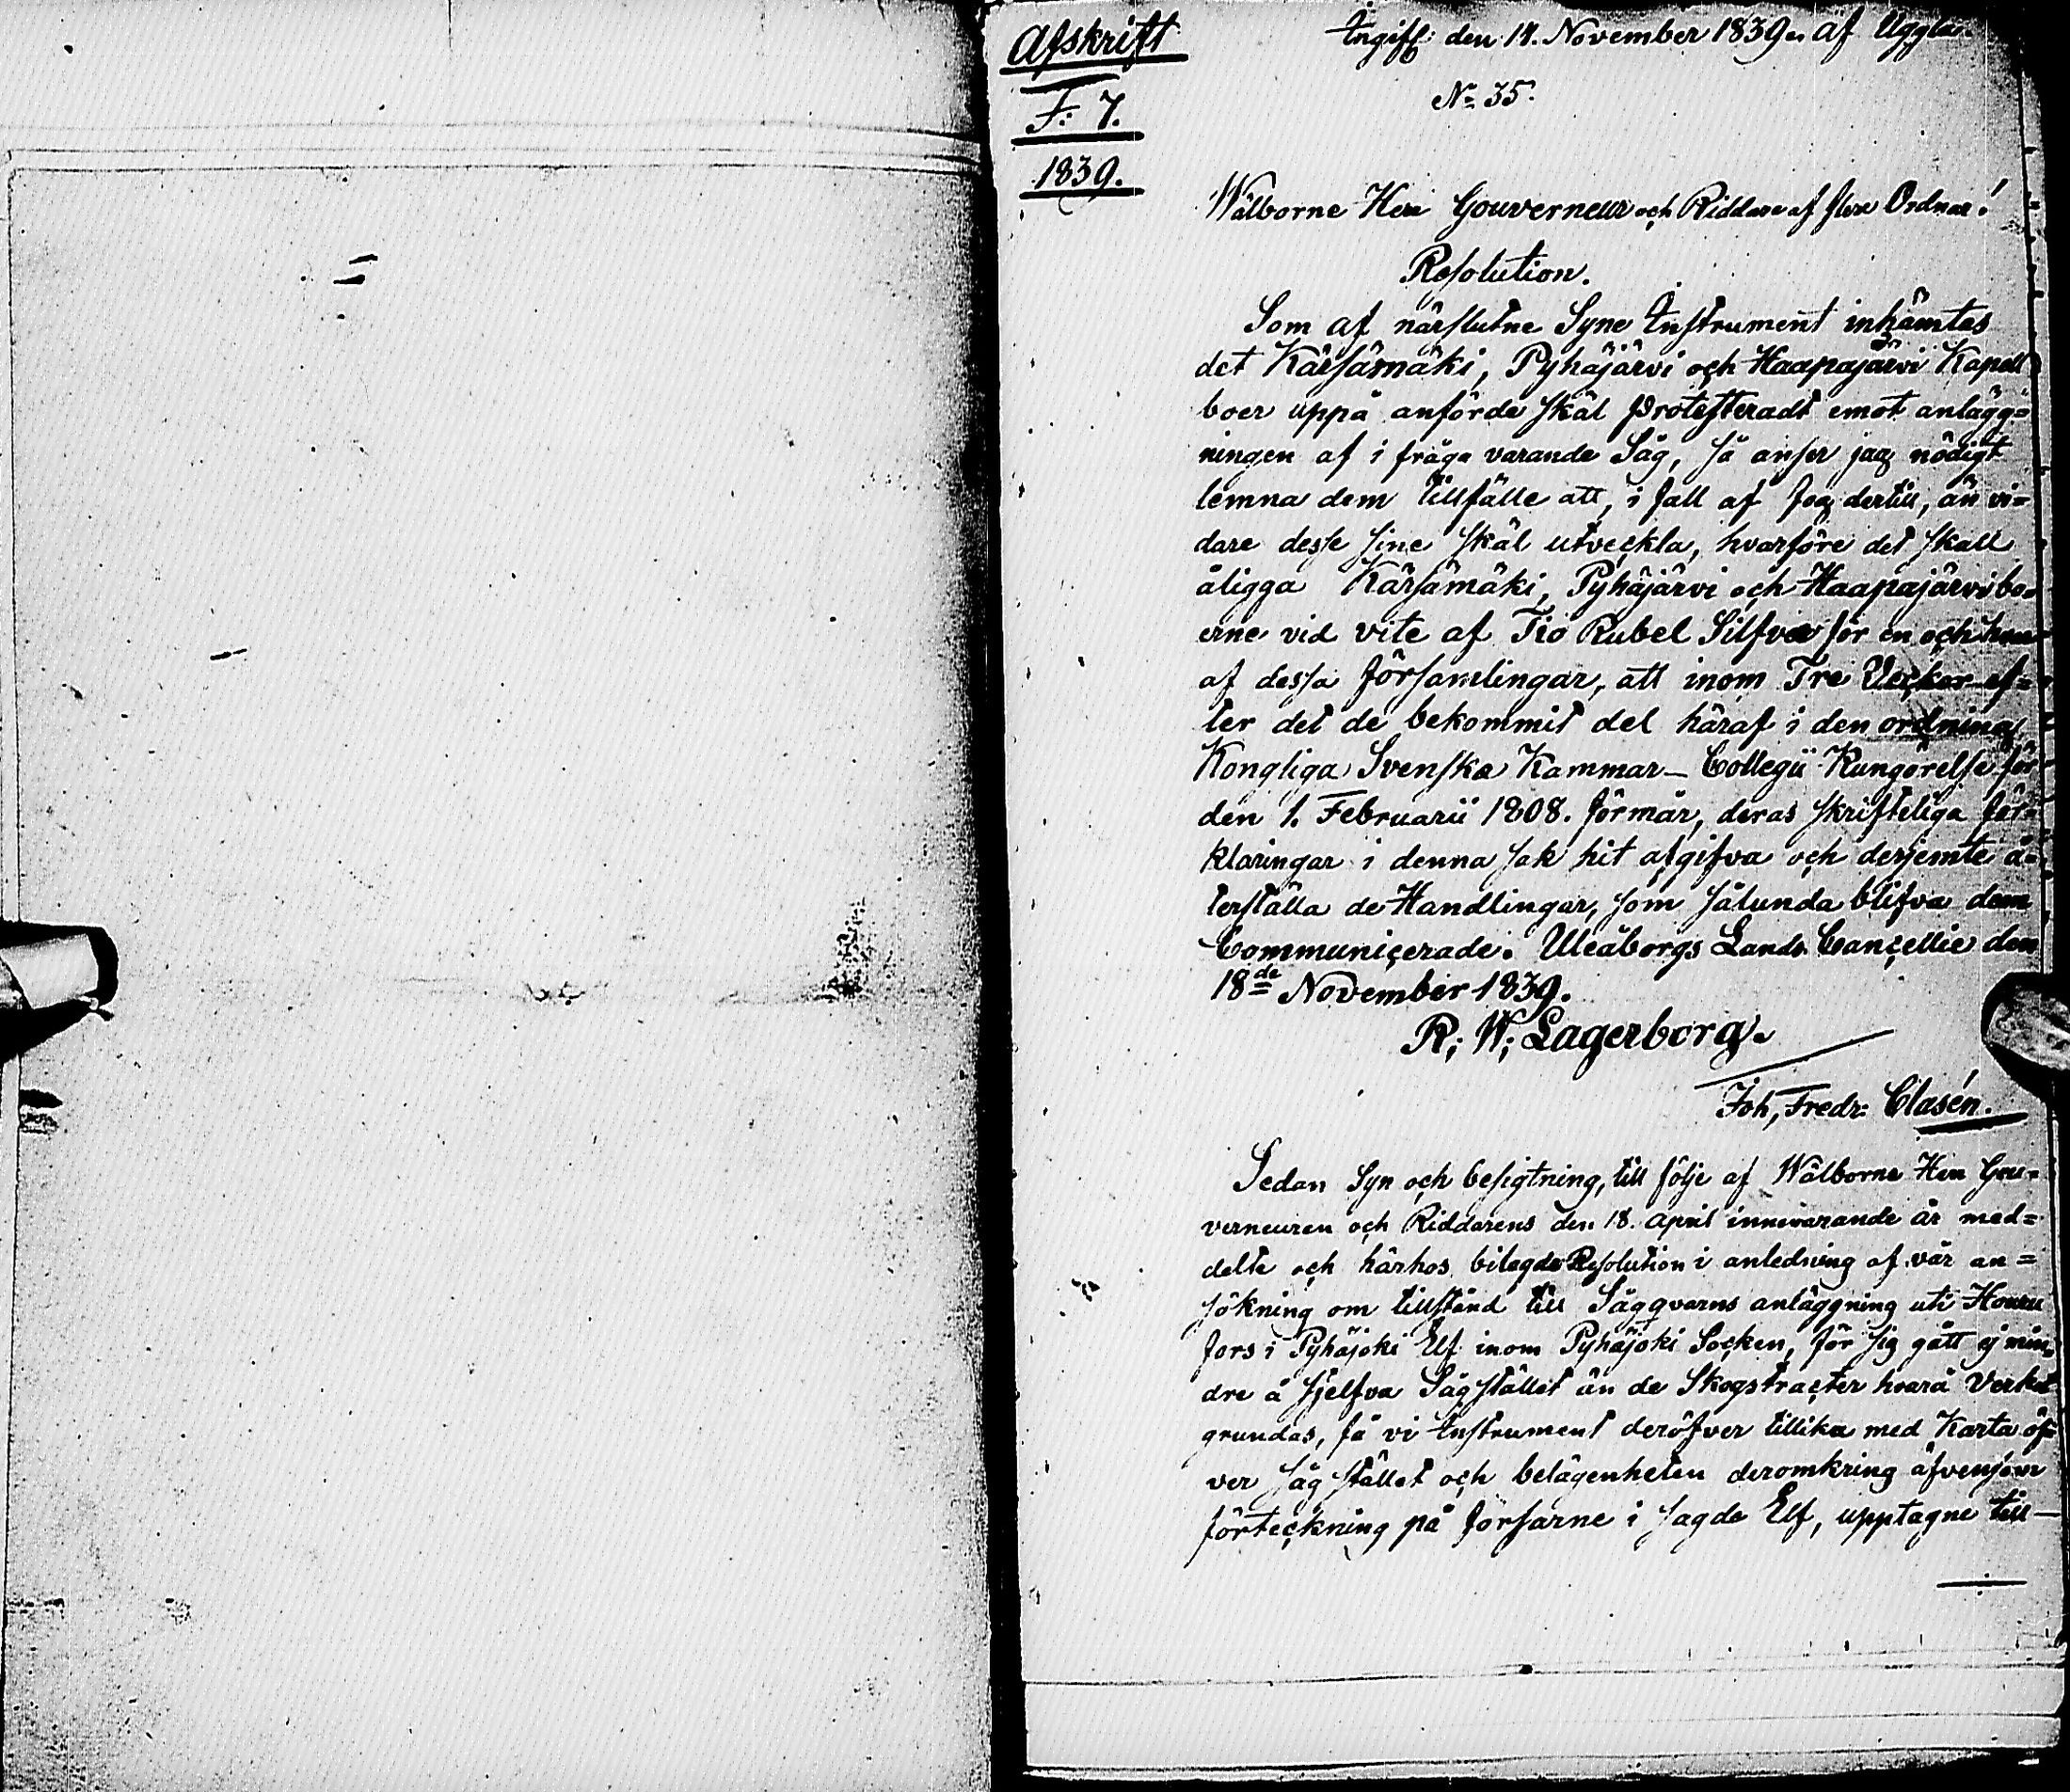 Afskrift
F: 7.
1839.
Ingifv: den 14. November 1839. af Uggla.
No 35.
Wälborne Herr Gouverneur och Riddare af flere Ordnar!
Resolution.
Som af närslutne Syne Instrument inhämtas
det Kärsämäki, Pyhäjärvi och Haapajärvi Kapell
boer uppå anförde skäl protesteradt emot anlägg=
ningen af i fråga varande Såg, så anser jag nödigt
lemna dem tillfälle att, i fall af fog dertill, än vi=
dare desse sine skäl utveckla, hvarföre det skall
åligga Kärsämäki, Pyhäjärvi och Haapajärvi bo=
erne vid vite af Tio Rubel Silfver för en och hvar
af dessa församlingar, att inom Tre Veckor ef=
ter det de bekommit del häraf i den ordning
Kongliga Svenska Kammar-Collegii Kungörelse för
den 1. Februarii 1808. förmår, deras skrifteliga för=
klaringar i denna sak hit afgifva och derjemte å=
terställa de Handlingar, som sålunda blifva dem
Communicerade. Uleåborgs Lands Cancellie den
18de November 1839.
R; W; Lagerborg.
Joh, Fredr: Clasén.
Sedan Syn och besigtning, till följe af Wälborne Herr Gou=
verneuren och Riddarens den 18. April innevarande år med=
delte och härhos bilagde Resolution i anledning af vår an=
sökning om tillstånd till Sågqvarns anläggning uti Hourn
fors i Pyhäjoki Elf inom Pyhäjoki Socken, för sig gått ej min=
dre å sjelfva Sågstället än de Skogstracter hvarå Verket
grundas, få vi Instrument deröfver tillika med Karta öf=
ver Sågstället och belägenheten deromkring äfvensom
förteckning på forsarne i sagde Elf, upptagne till-